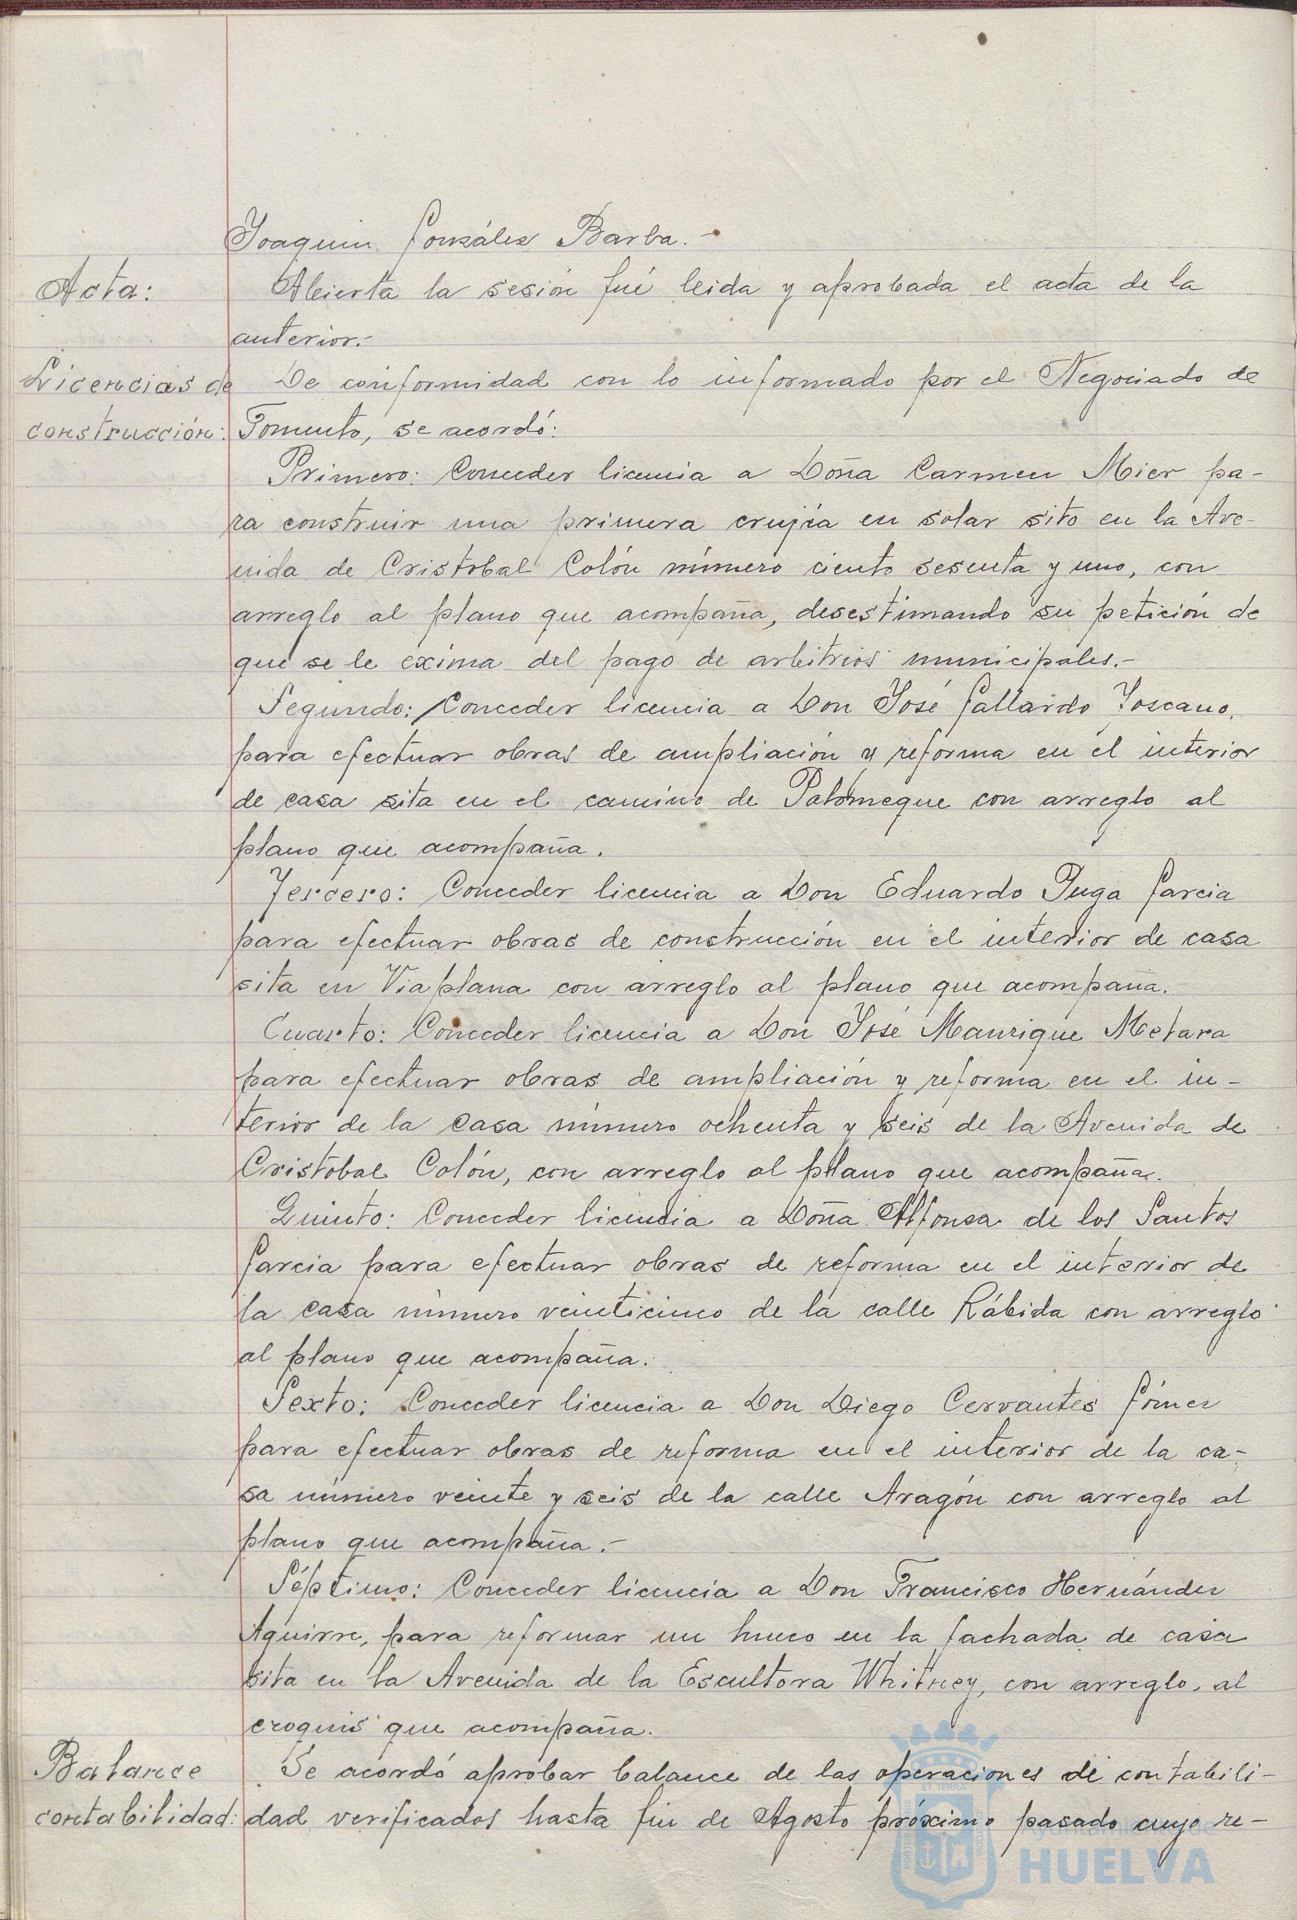 Joaquin González Barba.-
Acta: Abierta la sesión fué leida y aprobada el acta de la
anterior.-
Licencias de De conformidad con lo informado por el Negociado de
construcción: Fomento, se acordó:
Primero: Conceder licencia a Doña Carmen Mier pa-
ra construir una primera crujía en solar sito en la Ave-
nida de Cristobal Colón número ciento sesenta y uno, con
arreglo al plano que acompaña, desestimando su petición de
que se le exima del pago de arbitrios municipales.-
Segundo: Conceder licencia a Don José Gallardo Toscano,
para efectuar obras de ampliación y reforma en el interior
de casa sita en el camino de Palomeque con arreglo al
plano que acompaña.
Tercero: Conceder licencia a Don Eduardo Puga Garcia
para efectuar obras de construcción en el interior de casa
sita en Viaplana con arreglo al plano que acompaña.-
Cuarto: Conceder licencia a Don José Manrique
para efectuar obras de ampliación y reforma en el in-
terior de la casa número ochenta y seis de la Avenida de
Cristobal Colón, con arreglo al plano que acompaña.
Quinto: Conceder licencia a Doña Alfonsa de los Santos
Garcia para efectuar obras de reforma en el interior de
la casa número veinticinco de la calle Rábida con arreglo
al plano que acompaña.
Sexto: Conceder licencia a Don Diego Cervantes Gómez
para efectuar obras de reforma en el interior de la ca-
sa número veinte y seis de la calle Aragón con arreglo al
plano que acompaña.-
Séptimo: Conceder licencia a Don Francisco Hernández
Aguirre, para reformar un hueco en la fachada de casa
sita en la Avenida de la Escultora Whitney, con arreglo al
croquis que acompaña.
Balance Se acordó aprobar balance de las operaciones de contabili-
contabilidad: dad verificados hasta fin de Agosto próximo pasado cuyo re-
Ayuntamiento de
HUELVA